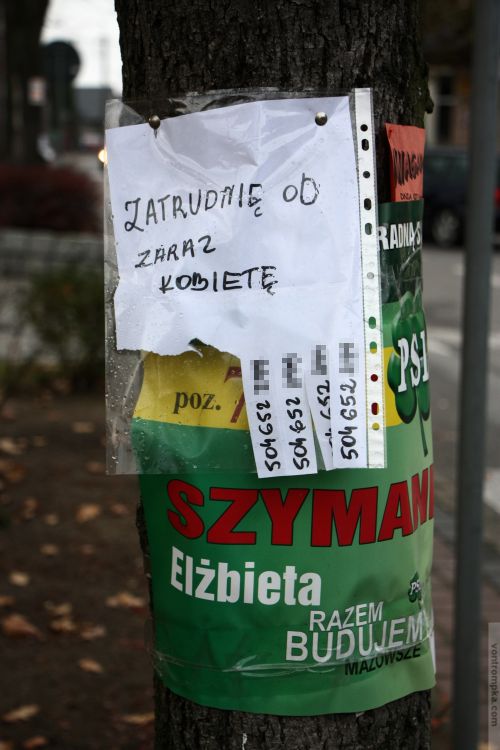 ZATRUDNIĘ OD
ZARAZ
KOBIETĘ
504652
504652
504652
504652
RADNA
PSL
poz. 7
SZYMAN
Elżbieta
RAZEM
BUDUJEMY
MAZOWSZE
vontrompka.com